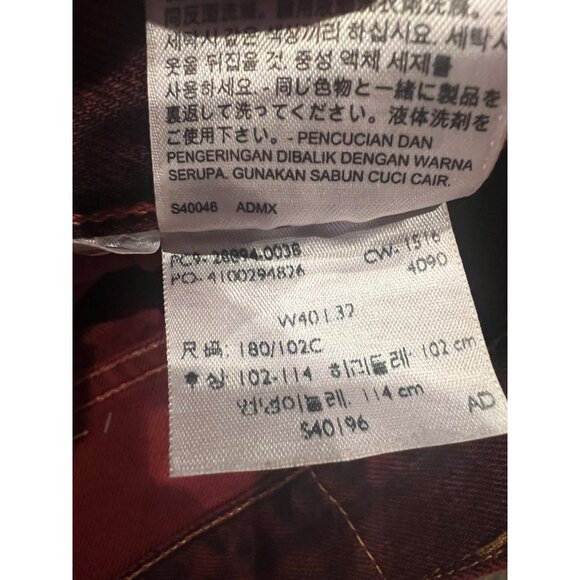 同反面洗滌。請用液體洗衣劑洗滌。-
세탁시 같은 색상끼리 하십시요. 세탁시
옷을 뒤집을 것. 중성 액체 세제를
사용하세요. - 同じ色物と一緒に製品を
裏返して洗ってください。液体洗剤を
ご使用下さい。- PENCUCIAN DAN
PENGERINGAN DIBALIK DENGAN WARNA
SERUPA. GUNAKAN SABUN CUCI CAIR.
S40046 ADMX
PC9- 28894.0038 CW- 1516
PO- 4100294826 4090
W40 L32
尺码: 180/102C
호칭: 102-114 허리둘레: 102 cm
엉덩이둘레: 114 cm
S40196 AD